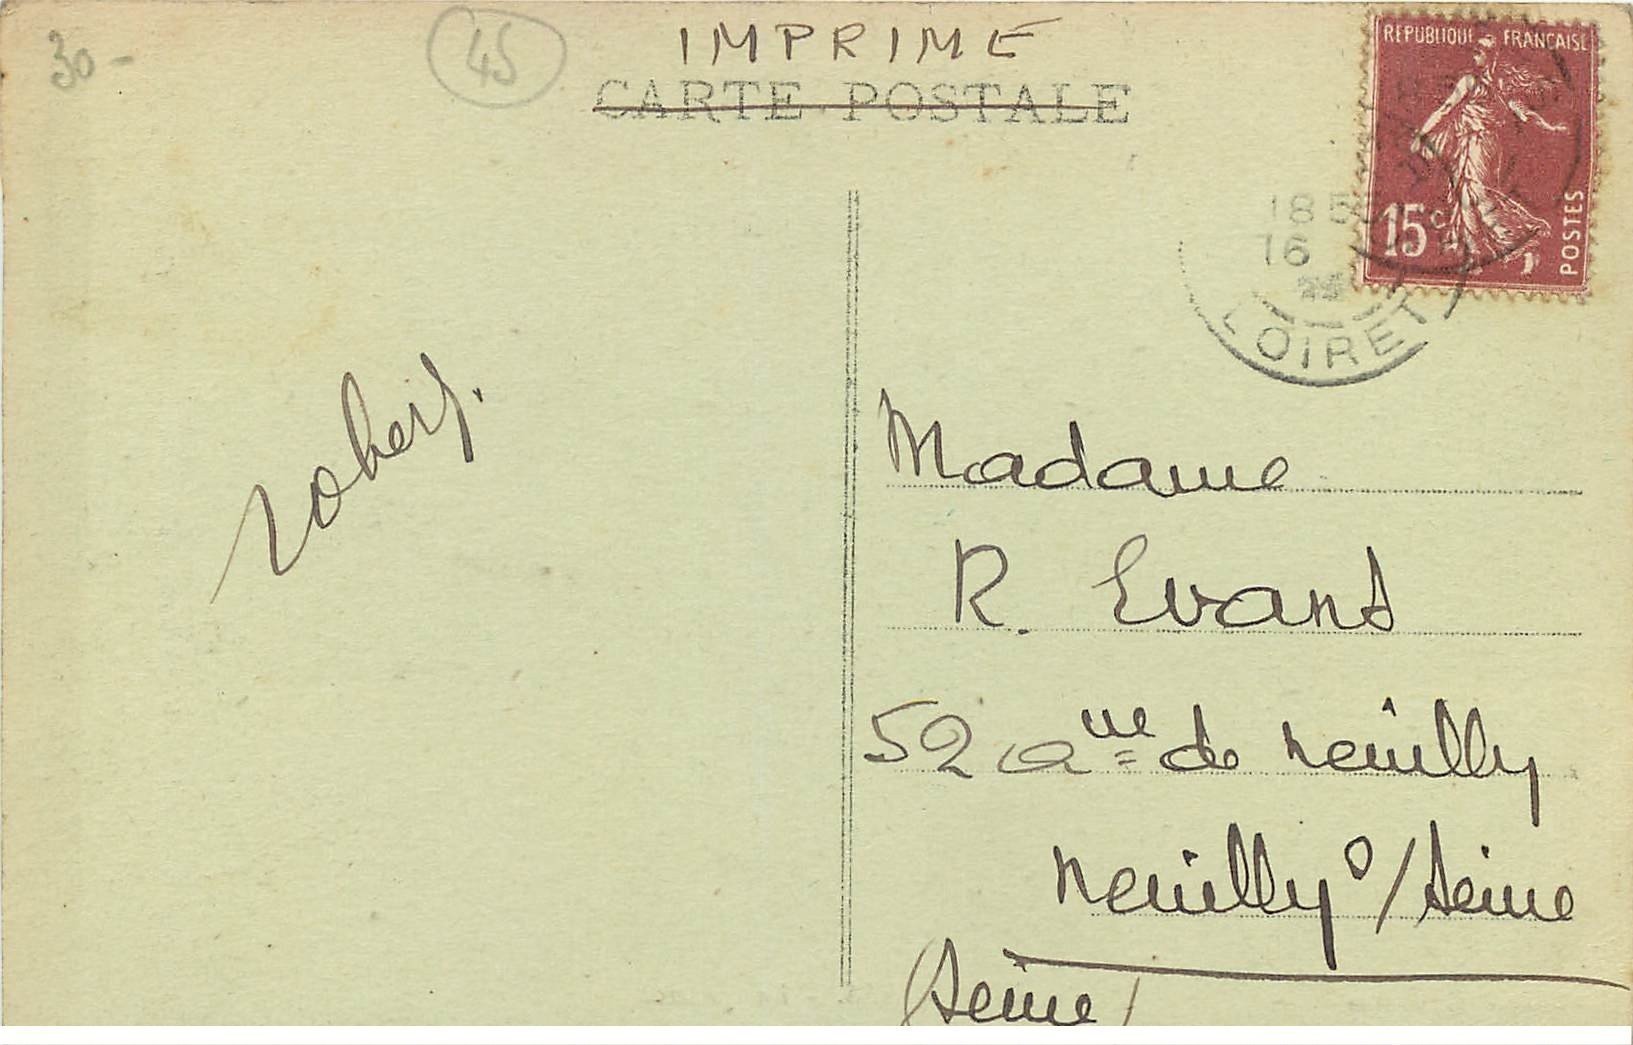 30-
45
IMPRIME
CARTE POSTALE
REPUBLIQUE FRANÇAISE
15c
POSTES
18 5
16
LOIRET
robert.
Madame
R. Evans
52 aᵛᵉ de Neuilly
Neuilly s/Seine
(Seine)